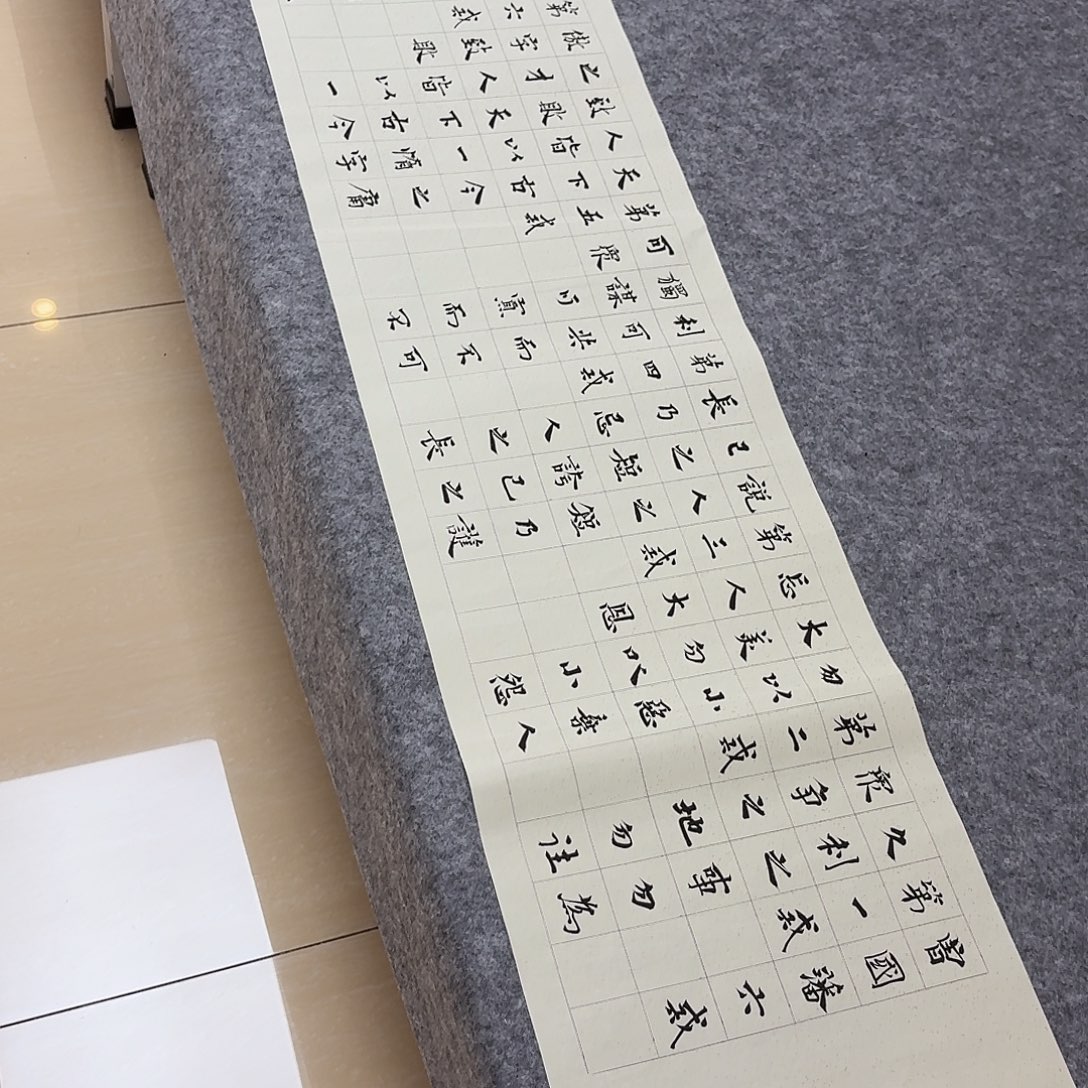 曾國藩六戒
第一戒
久利之事勿為
眾爭之地勿往
第二戒
勿以小惡棄人
大美勿以小怨
忘人大恩
第三戒
說人之短乃護
己之短誇己之
長乃忌人之長
第四戒
利可共而不可
獨謀可寡而不
可眾
第五戒
天下古今之庸
人皆以一惰字
致敗天下古今
之才人皆以一
傲字致敗
第六戒